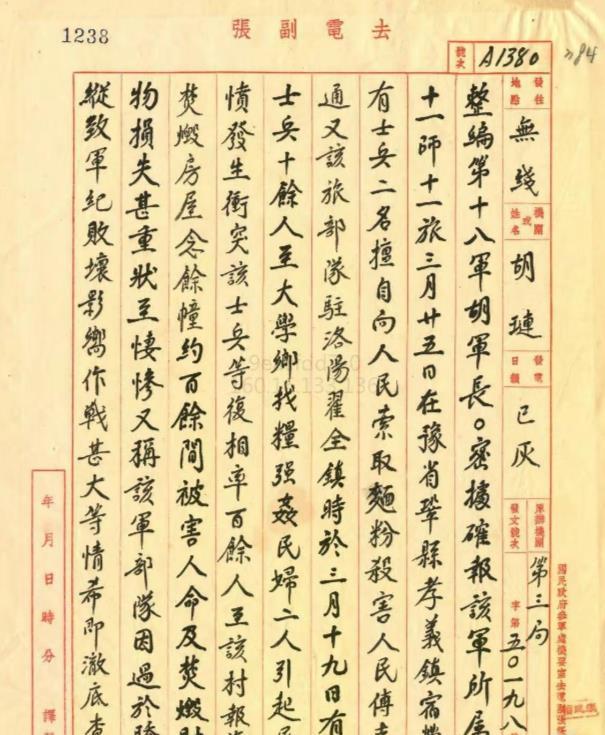 去電副張
1238
號次 A1380
發往地點 無綫 機關或姓名 胡璉 發電日韻 已灰 原辦機關 第三局 發文號次 字第五〇一九八
整編第十八軍胡軍長。密據確報該軍所屬
十一師十一旅三月廿五日在豫省鞏縣孝義鎮宿營
有士兵二名擅自向人民索取麵粉殺害人民傅
通又該旅部隊駐洛陽翟全鎮時於三月十九日有
士兵十餘人至大學鄉找糧强姦民婦二人引起民
憤發生衝突該士兵等復相率百餘人至該村報
焚燬房屋念餘幢約百餘間被害人命及焚燬財
物損失甚重狀至悽慘又稱該軍部隊因過於驕
縱致軍紀敗壞影嚮作戰甚大等情希即澈底查
年月日時分譯
國民政府參軍處機要室去電副張